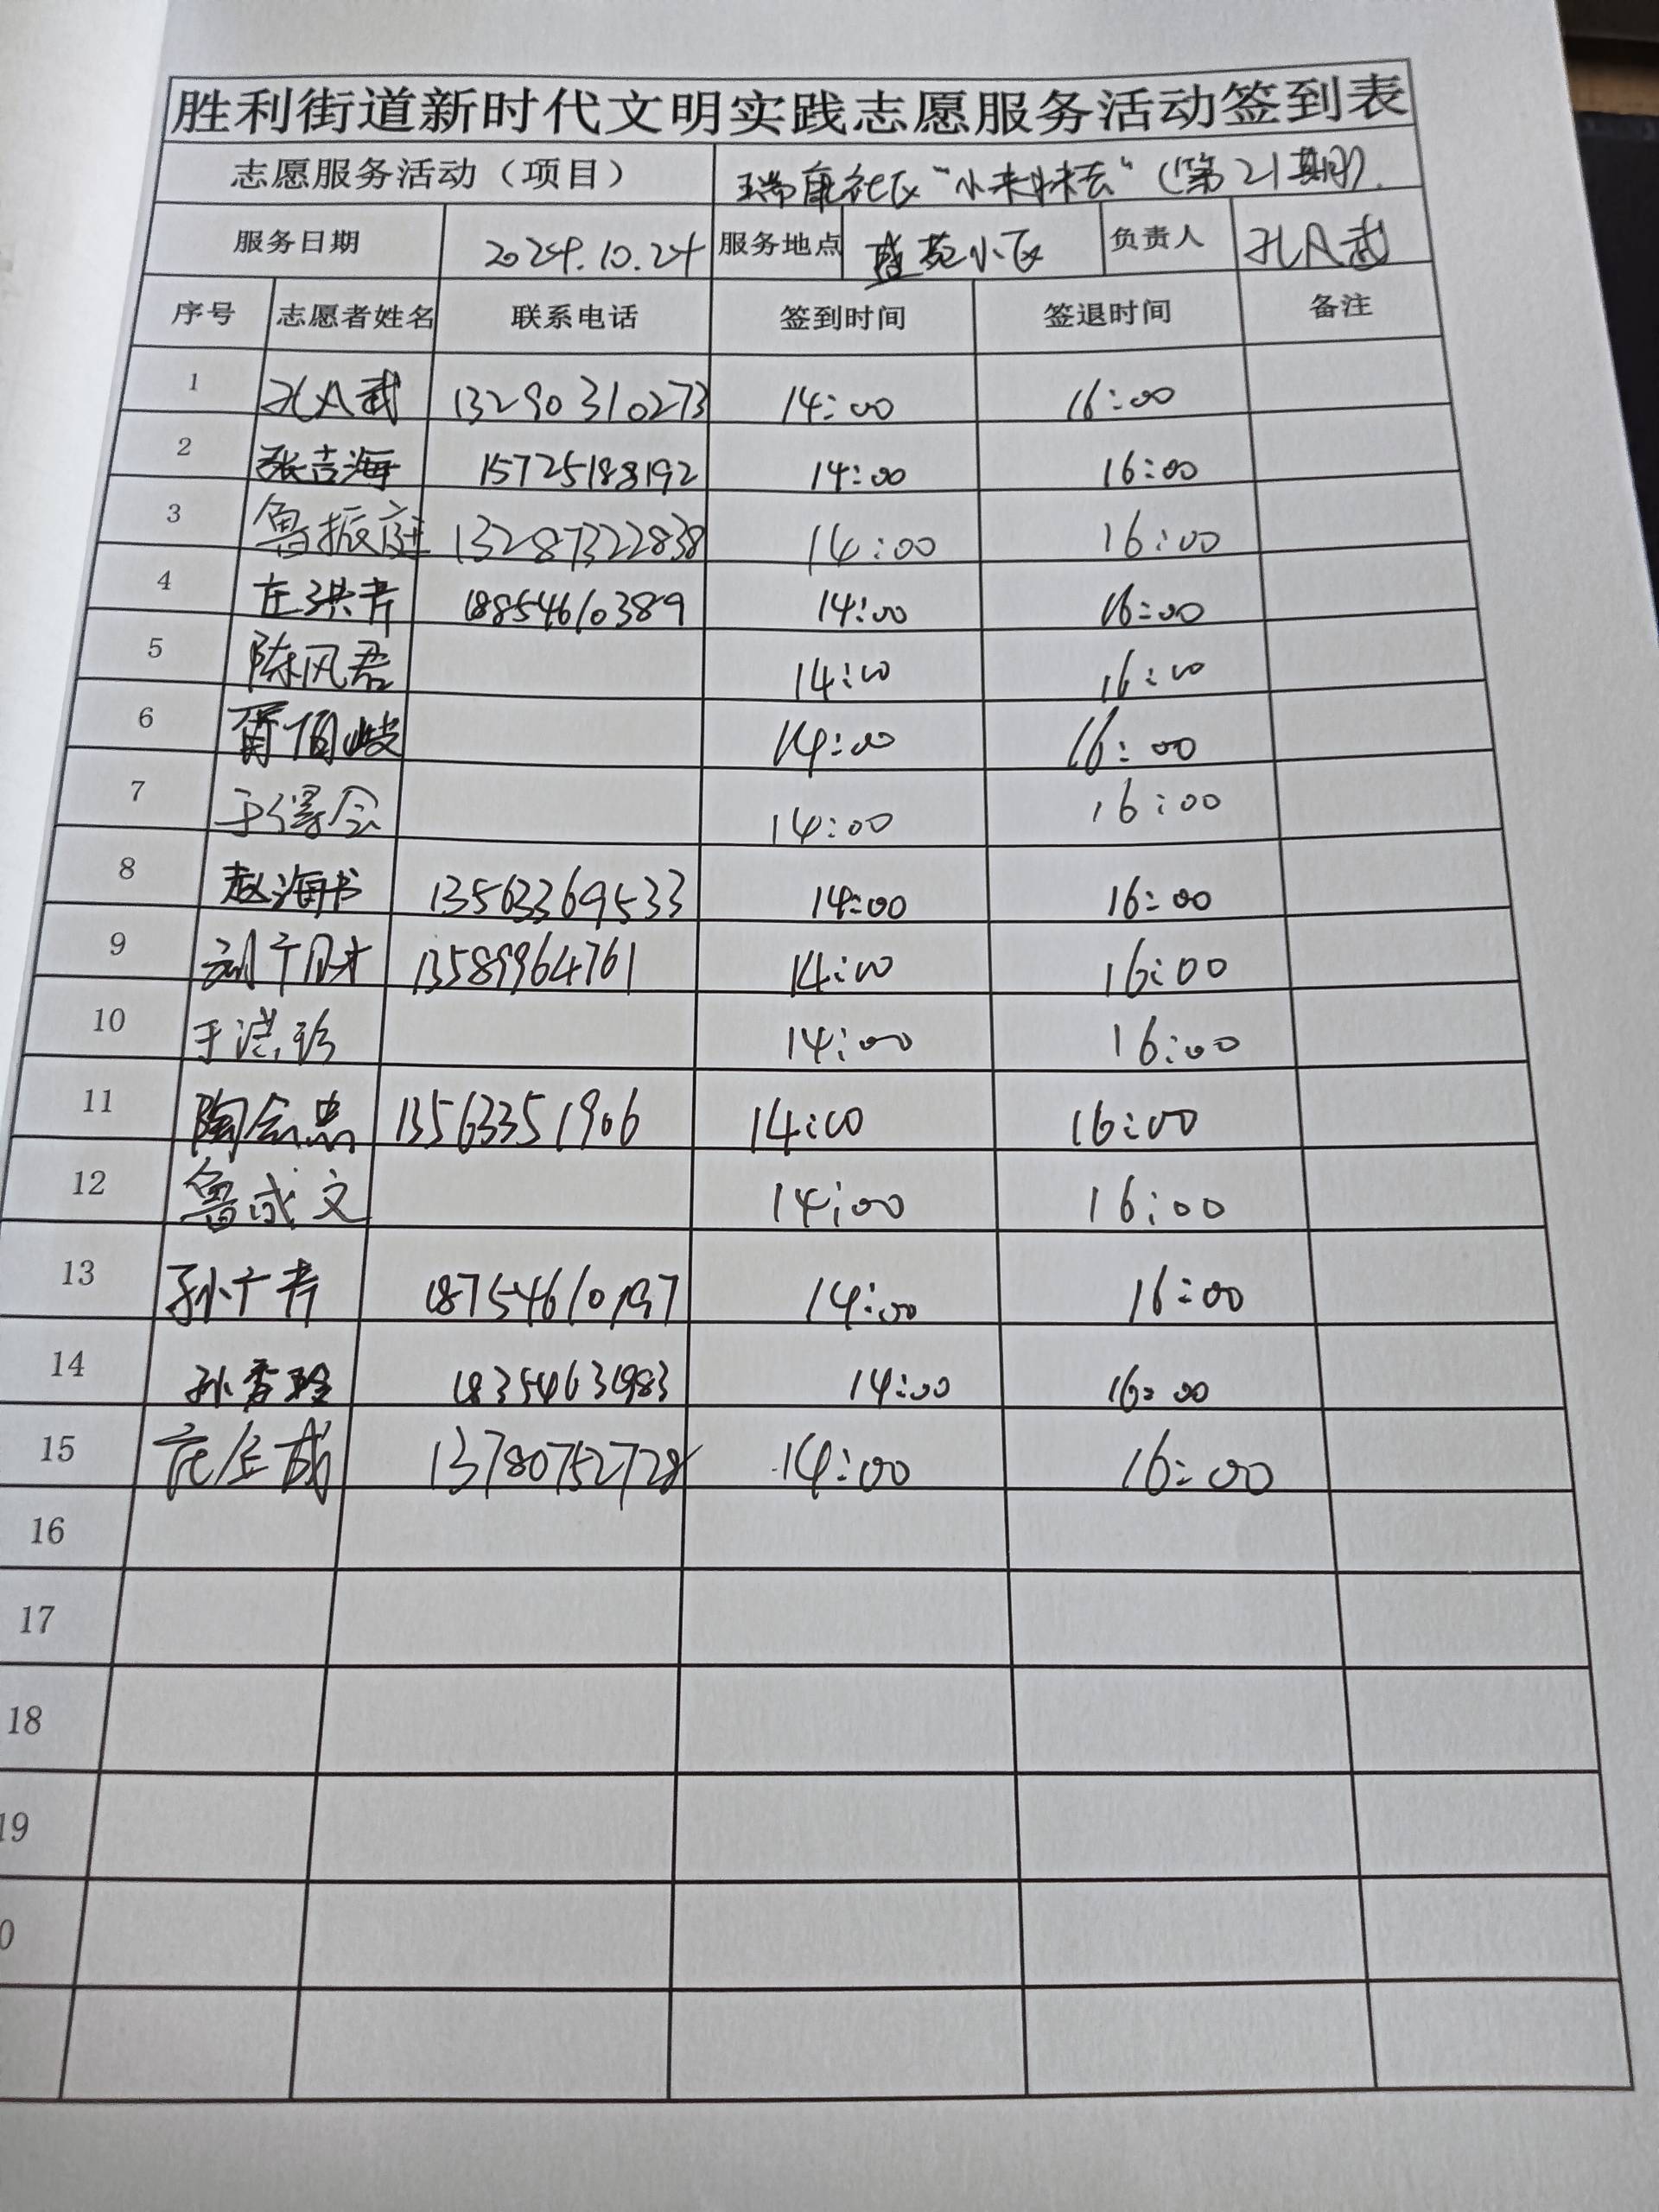 胜利街道新时代文明实践志愿服务活动签到表
志愿服务活动（项目） 瑞康社区 （第21期）
服务日期 2024.10.24 服务地点 盛苑小区 负责人
序号 志愿者姓名 联系电话 签到时间 签退时间 备注
1 13290310273 14:00 16:00
2 张吉海 15725188192 14:00 16:00
3 鲁振庭 13287322838 14:00 16:00
4 左洪芹 18854610389 14:00 16:00
5 陈风君 14:00 16:00
6 14:00 16:00
7 14:00 16:00
8 赵海书 13563369533 14:00 16:00
9 13589964761 14:00 16:00
10 14:00 16:00
11 陶会忠 13563351906 14:00 16:00
12 鲁成文 14:00 16:00
13 18754610797 14:00 16:00
14 孙香玲 14:00 16:00
15 13780752728 14:00 16:00
16
17
18
19
0